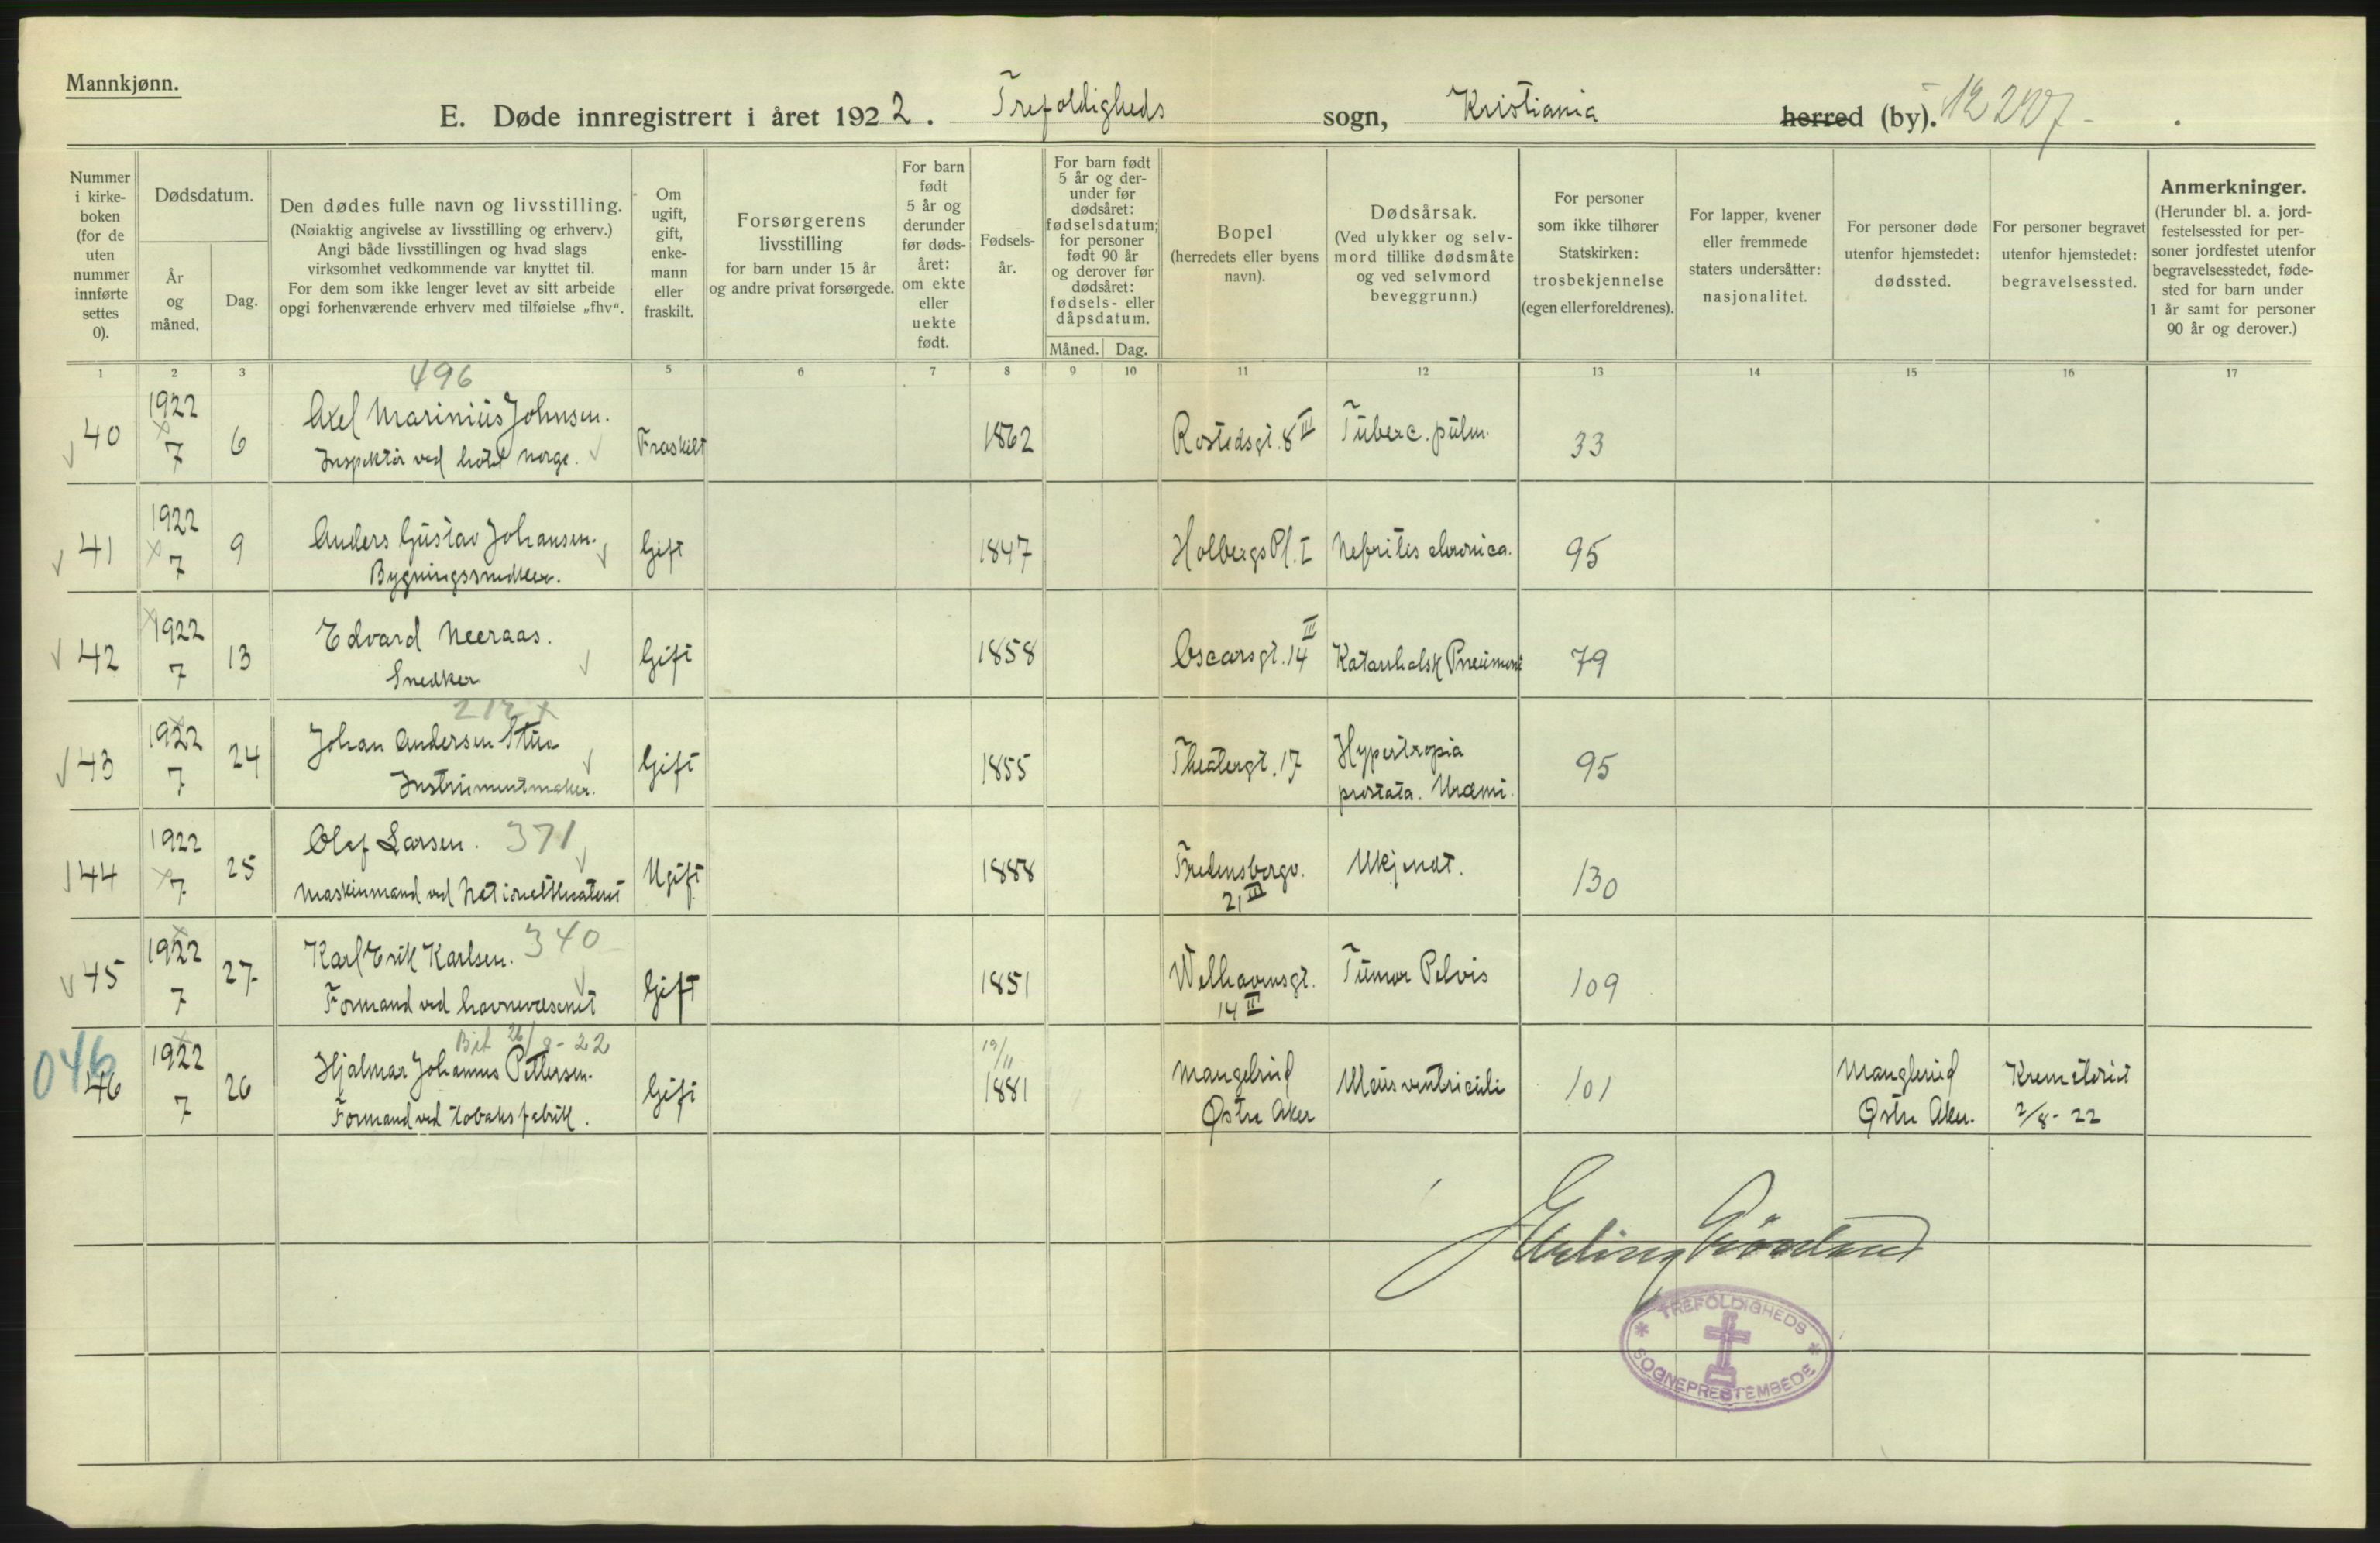 Mannkjønn.
E. Døde innregistrert i året 1922. Trefoldigheds sogn, Kristiania herred (by).
Nummer i kirke-boken (for de uten nummer innførte settes 0).
Dødsdatum.
År og måned.
Dag.
Den dødes fulle navn og livsstilling.
(Nøiaktig angivelse av livsstilling og erhverv.)
Angi både livsstillingen og hvad slags
virksomhet vedkommende var knyttet til.
For dem som ikke lenger levet av sitt arbeide
opgi forhenværende erhverv med tilføielse „fhv“.
Om ugift, gift, enke-mann eller fraskilt.
Forsørgerens
livsstilling
for barn under 15 år
og andre privat forsørgede.
For barn født 5 år og derunder før døds-året: om ekte eller uekte født.
Fødsels-år.
For barn født 5 år og der-under før dødsåret: fødselsdatum; for personer født 90 år og derover før dødsåret: fødsels- eller dåpsdatum.
Måned. Dag.
Bopel
(herredets eller byens
navn).
Dødsårsak.
(Ved ulykker og selv-
mord tillike dødsmåte
og ved selvmord
beveggrunn.)
For personer
som ikke tilhører
Statskirken:
trosbekjennelse
(egen eller foreldrenes).
For lapper, kvener
eller fremmede
staters undersåtter:
nasjonalitet.
For personer døde
utenfor hjemstedet:
dødssted.
For personer begravet
utenfor hjemstedet:
begravelsessted.
Anmerkninger.
(Herunder bl. a. jord-
festelsessted for per-
soner jordfestet utenfor
begravelsesstedet, føde-
sted for barn under
1 år samt for personer
90 år og derover.)
1 2 3 5 6 7 8 9 10 11 12 13 14 15 16 17
496
40 1922 7 6 Axel Marinius Johnsen. Fraskilt 1862 Rostedsgt. 8 III Tuberc. pulm. 33
Inspektør ved hotel Norge.
41 1922 7 9 Anders Gustav Johansen. Gift 1847 Holbergs Pl. I Nefritis chronica. 95
Bygningssnedker.
42 1922 7 13 Edvard Neeraas. Gift 1858 Oscarsgt. 14 III Katarrhalsk Pneumoni 79
Snedker
43 1922 7 24 Johan Andersen Gift 1855 Theatergt. 17 Hypertropia 95
Instrumentmaker. prostata. Uræmi.
44 1922 7 25 Olaf Larsen. 371 Ugift 1888 Fredensborgv. 21 III Ukjendt. 130
Maskinmand ved Nationaltheatret
45 1922 7 27 Karl Erik Karlsen. 340 Gift 1851 Welhavensgt. 14 Tumor Pelvis 109
Formand ved havnevæsenet
046 26/8-22 19/11
46 1922 7 26 Hjalmar Johannes Pettersen. Gift 1881 Mangelrud Ulcus ventriculi 101 Manglerud Krematoriet
Formand ved tobaksfabrik. Østre Aker Østre Aker. 2/8-22
Erling Grönland
TREFOLDIGHEDS
SOGNEPRESTEMBEDE